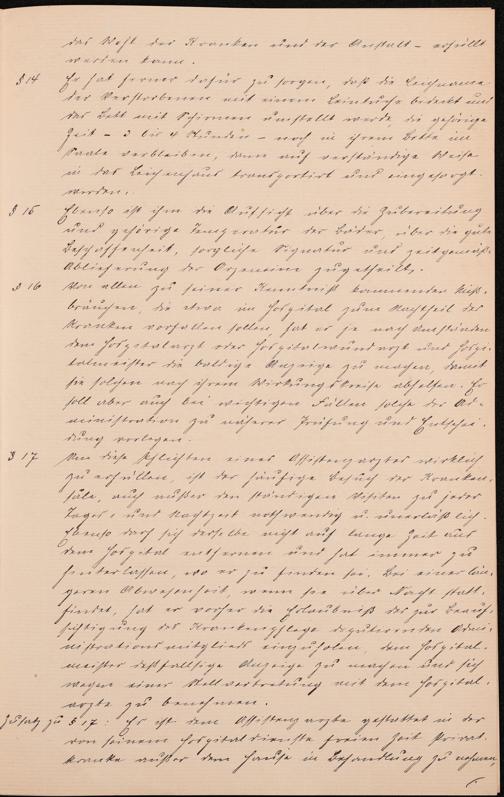 das Wohl der Kranken und der Anstalt – erfüllt
werden kann.
§ 14 Er hat ferner dafür zu sorgen, daß die Leichname
der Verstorbenen mit einem Leintuche bedeckt und
das Bett mit Schirmen umstellt werde, die gehörige
Zeit – 3 bis 4 Stunden – noch in ihrem Bette im
Saale verbleiben, dann auf verständige Weise
in das Leichenhaus transportirt und eingesorgt
werden.
§ 15 Ebenso ist ihm die Aufsicht über die Zubereitung
und gehörige Temperatur der Bäder, über die gute
Beschaffenheit, sorgliche Signatur und zeitgemäße
Ablieferung der Arzeneien zugetheilt.
§ 16 Von allen zu seiner Kenntniß kommenden Miß-
bräuchen, die etwa im Hospital zum Nachtheil der
Kranken vorfallen sollen, hat er je nach Umständen
dem Hospitalarzt oder Hospitalwundarzt und Hospi-
talmeister die baldige Anzeige zu machen, damit
sie solchen nach ihrem Wirkungskreise abhelfen. Er
soll aber auch bei wichtigen Fällen solche der Ad-
ministration zu näherer Prüfung und Entschei-
dung vorlegen.
§ 17 Um diese Pflichten eines Assistenzarztes wirklich
zu erfüllen, ist der häufige Besuch der Kranken-
säle, auch außer den ständigen Visiten zu jeder
Tages- und Nachtzeit nothwendig u. unerläßlich.
Ebenso darf sich derselbe nicht auf lange Zeit aus
dem Hospital entfernen und hat immer zu
hinterlassen, wo er zu finden sei. Bei einer län-
geren Abwesenheit, wenn sie über Nacht statt-
findet, hat er vorher die Erlaubniß des zur Beauf-
sichtigung der Krankenpflege deputirenden Admi-
nistrationsmitglieds einzuholen, dem Hospital-
meister deßfallsige Anzeige zu machen und sich
wegen einer Stellvertretung mit dem Hospital-
arzte zu benehmen.
Zusatz zu § 17: Es ist dem Assistenzarzte gestattet in der
von seinem Hospitaldienste freien Zeit Privat-
kranke außer dem Hause in Behandlung zu nehmen,